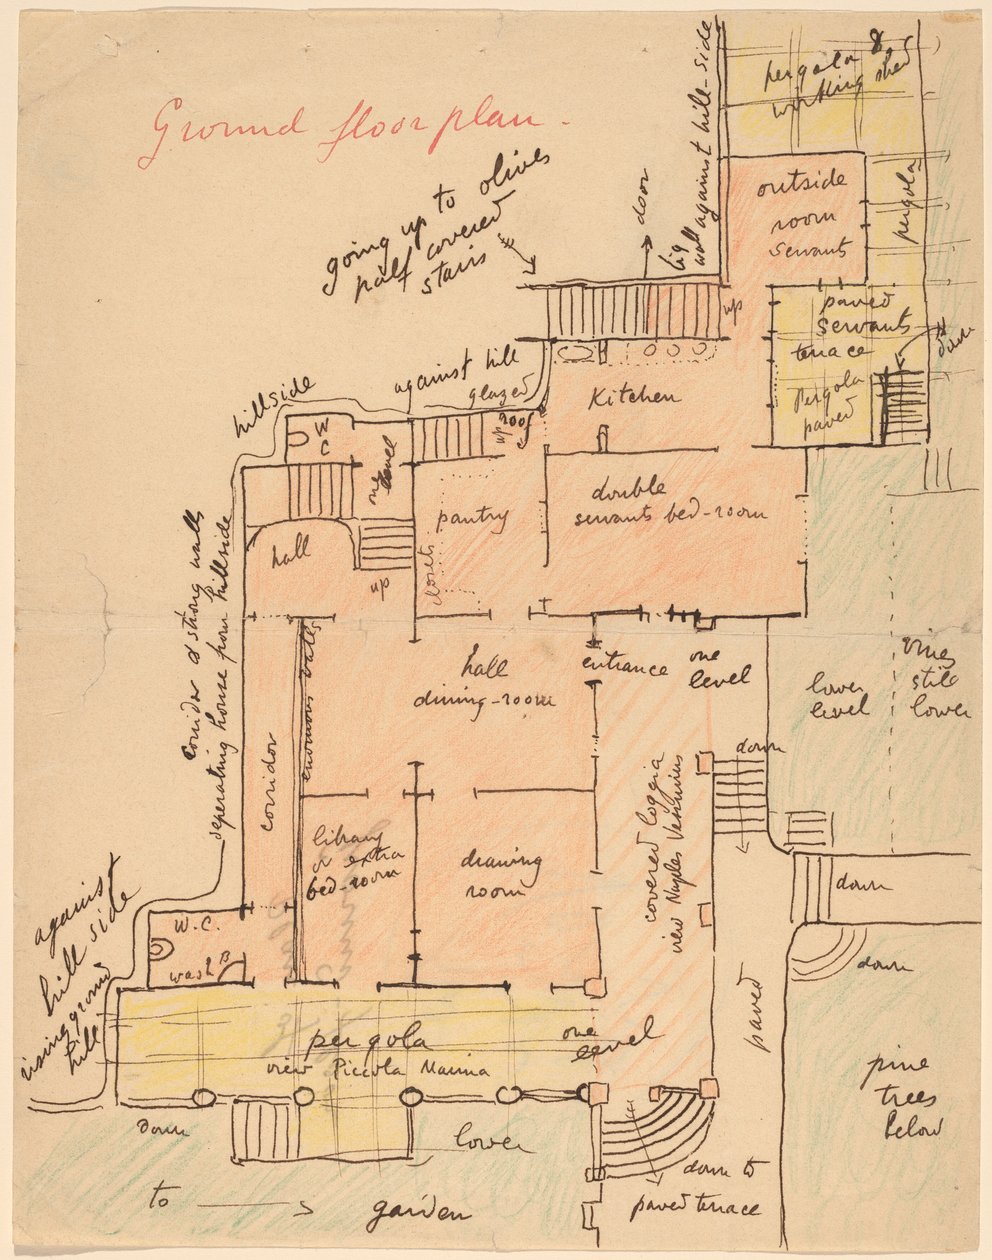 Ground floor plan.
pergola &
working shed
big
wall against hill-side
door
going up to olives
half covered
stairs
outside
room
servants
pergola
up
paved
servants
terrace
Pergola
paved
down
hillside
against hill
glazed
roof
up
Kitchen
W
C
one
level
pantry
closets
double
servants bed-room
hall
up
corridor & strong walls
seperating house from hillside
enormous walls
corridor
hall
dining-room
entrance
one
level
lower
level
vines
still
lower
down
covered loggia
view Naples Vesuvius
library
or extra
bed-room
drawing
room
down
down
against
hill side
rising ground
hill
W.C.
wash B
pergola
view Piccola Marina
one
level
paved
pine
trees
below
down
lower
down to
paved terrace
to
garden